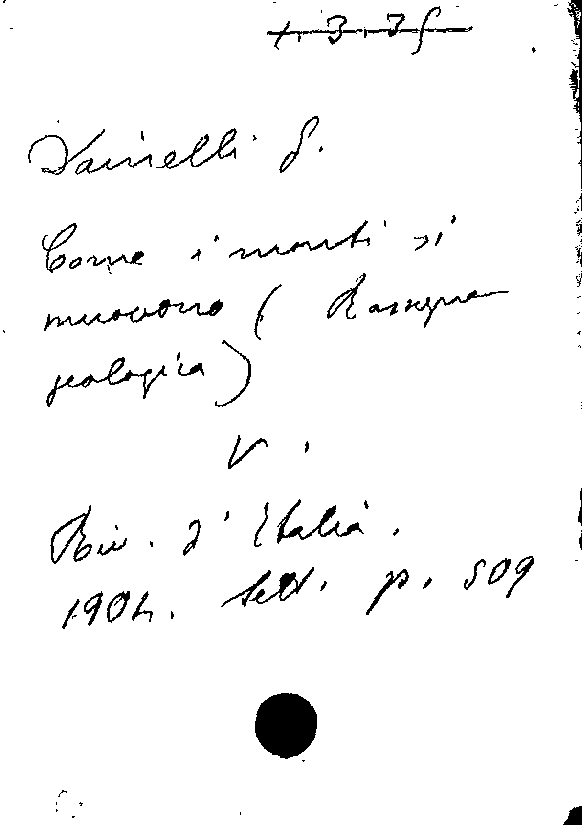 1.3.35
Dainelli G.
Come i monti si
muovono (Rassegna
geologica)
V.
Riv. d'Italia.
1904. Sett. p. 509